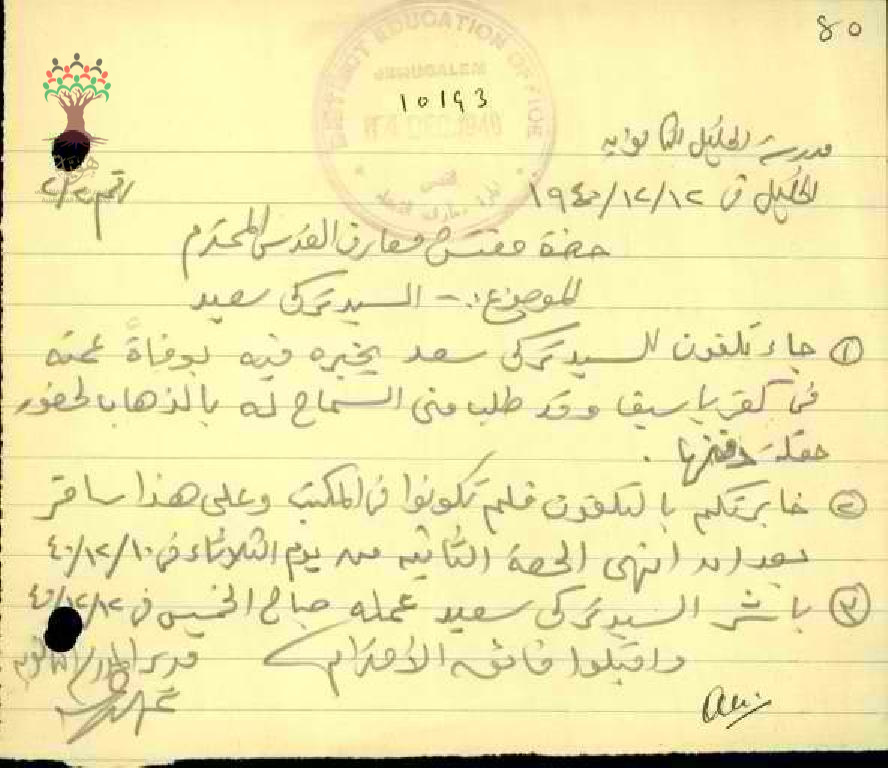 80
DISTRICT EDUCATION OFFICE
JERUSALEM
10193
14 DEC 1940
القدس
مدرسة الخليل الثانوية
الخليل في ١٩٤٠/١٢/١٢
حضرة مفتش معارف القدس المحترم
الموضوع :- السيد تركي سعيد
① جاء تلفون للسيد تركي سعيد يخبره فيه بوفاة عمته
في كفر ياسيف وقد طلب مني السماح له بالذهاب لحضور
حفلة دفنها .
② خابرتكم بالتلفون فلم تكونوا في المكتب وعلى هذا سافر
بعد ان انتهى الحصة الثانية من يوم الثلاثاء في ٤٠/١٢/١٠
③ باشر السيد تركي سعيد عمله صباح الخميس في ٤٠/١٢/١٢
واقبلوا فائق الاحترام
مدير المدرسة الثانوية